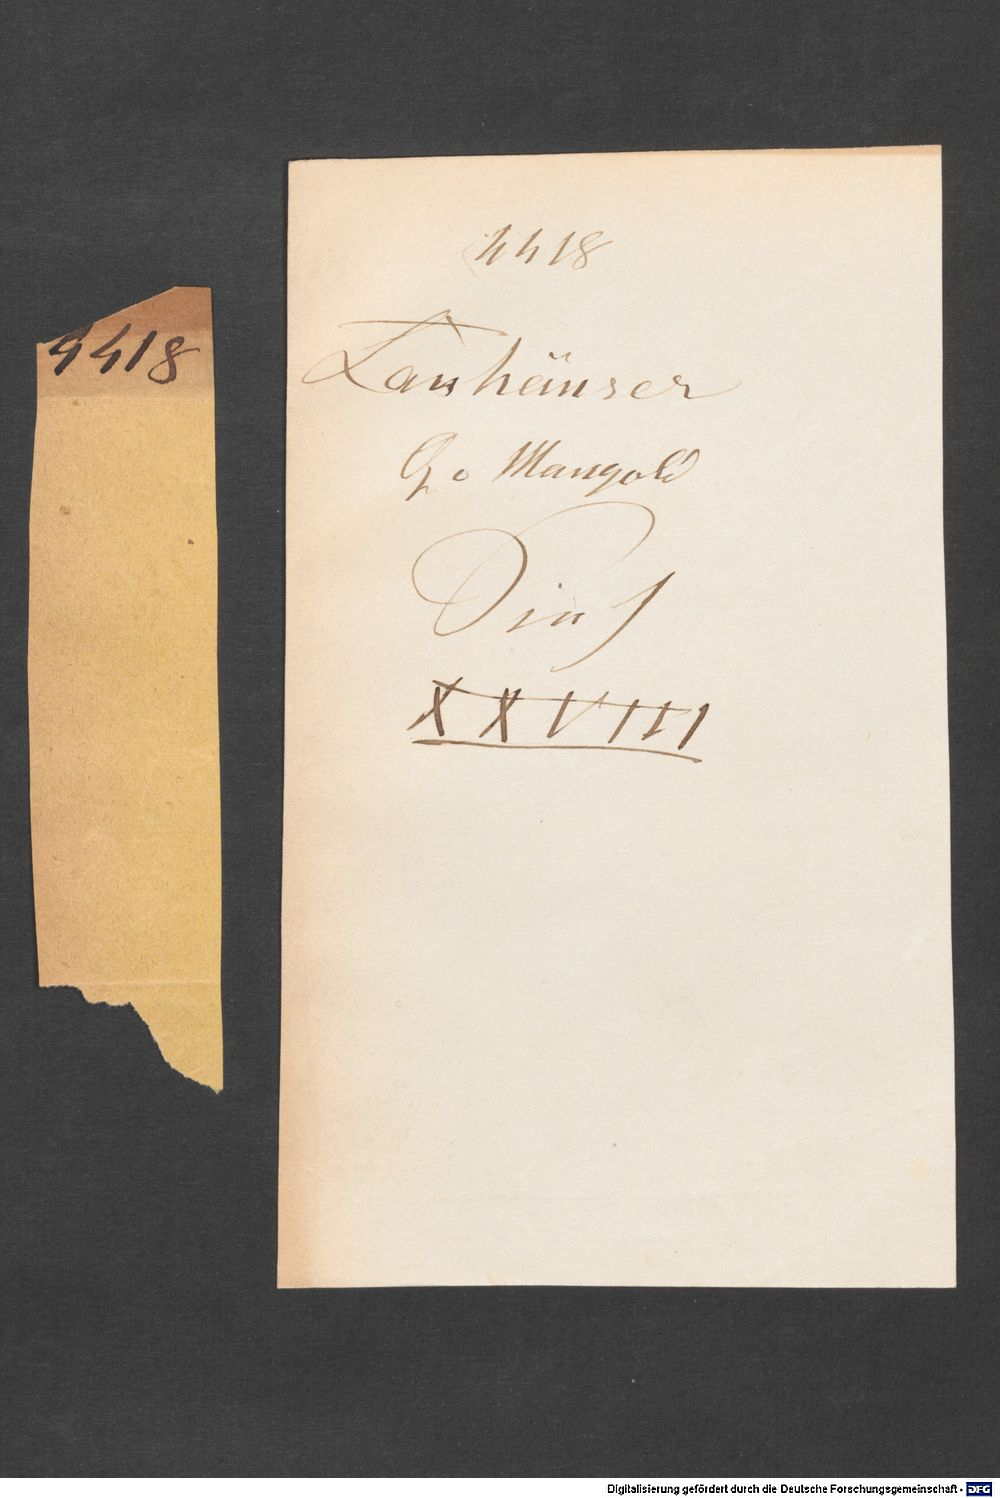 4418
4418
Tanhäuser
v Mangold
XXVIII
Digitalisierung gefördert durch die Deutsche Forschungsgemeinschaft - DFG